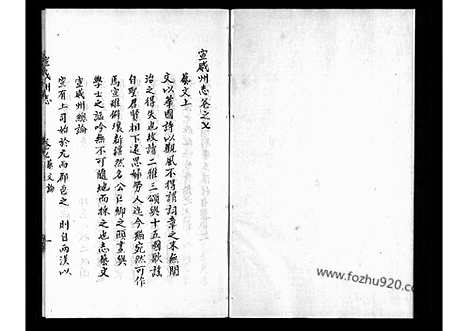 宣威州志卷之七
藝文上
文以華國詩以觀風不得謂詞章之末無關
治之得失也故請二雅三頌與十五國歌謠
自聖君賢相下逮思婦勞人迄今猶宛然可作
馬宣雖僻壤新疆然名公巨卿之顕畫與
學士之謳吟無不可隨地而採之也志藝文
宣威州總論
宣有土司始於元而郡邑之 則自兩漢以
宣威州志
卷之七 藝文 論
一
www.fozhu920.com